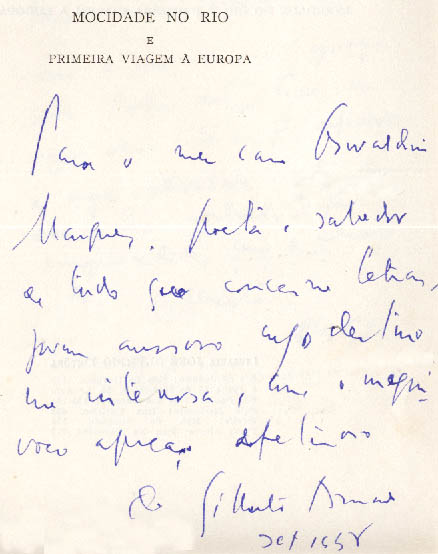 MOCIDADE NO RIO
E
PRIMEIRA VIAGEM À EUROPA
Para o meu caro Oswaldino
Marques, poeta, sabedor
de tudo que concerne letras,
jovem ansioso cujo destino
me interessa, com o inequí-
voco apreço afetuoso
do Gilberto Amado
set 1958